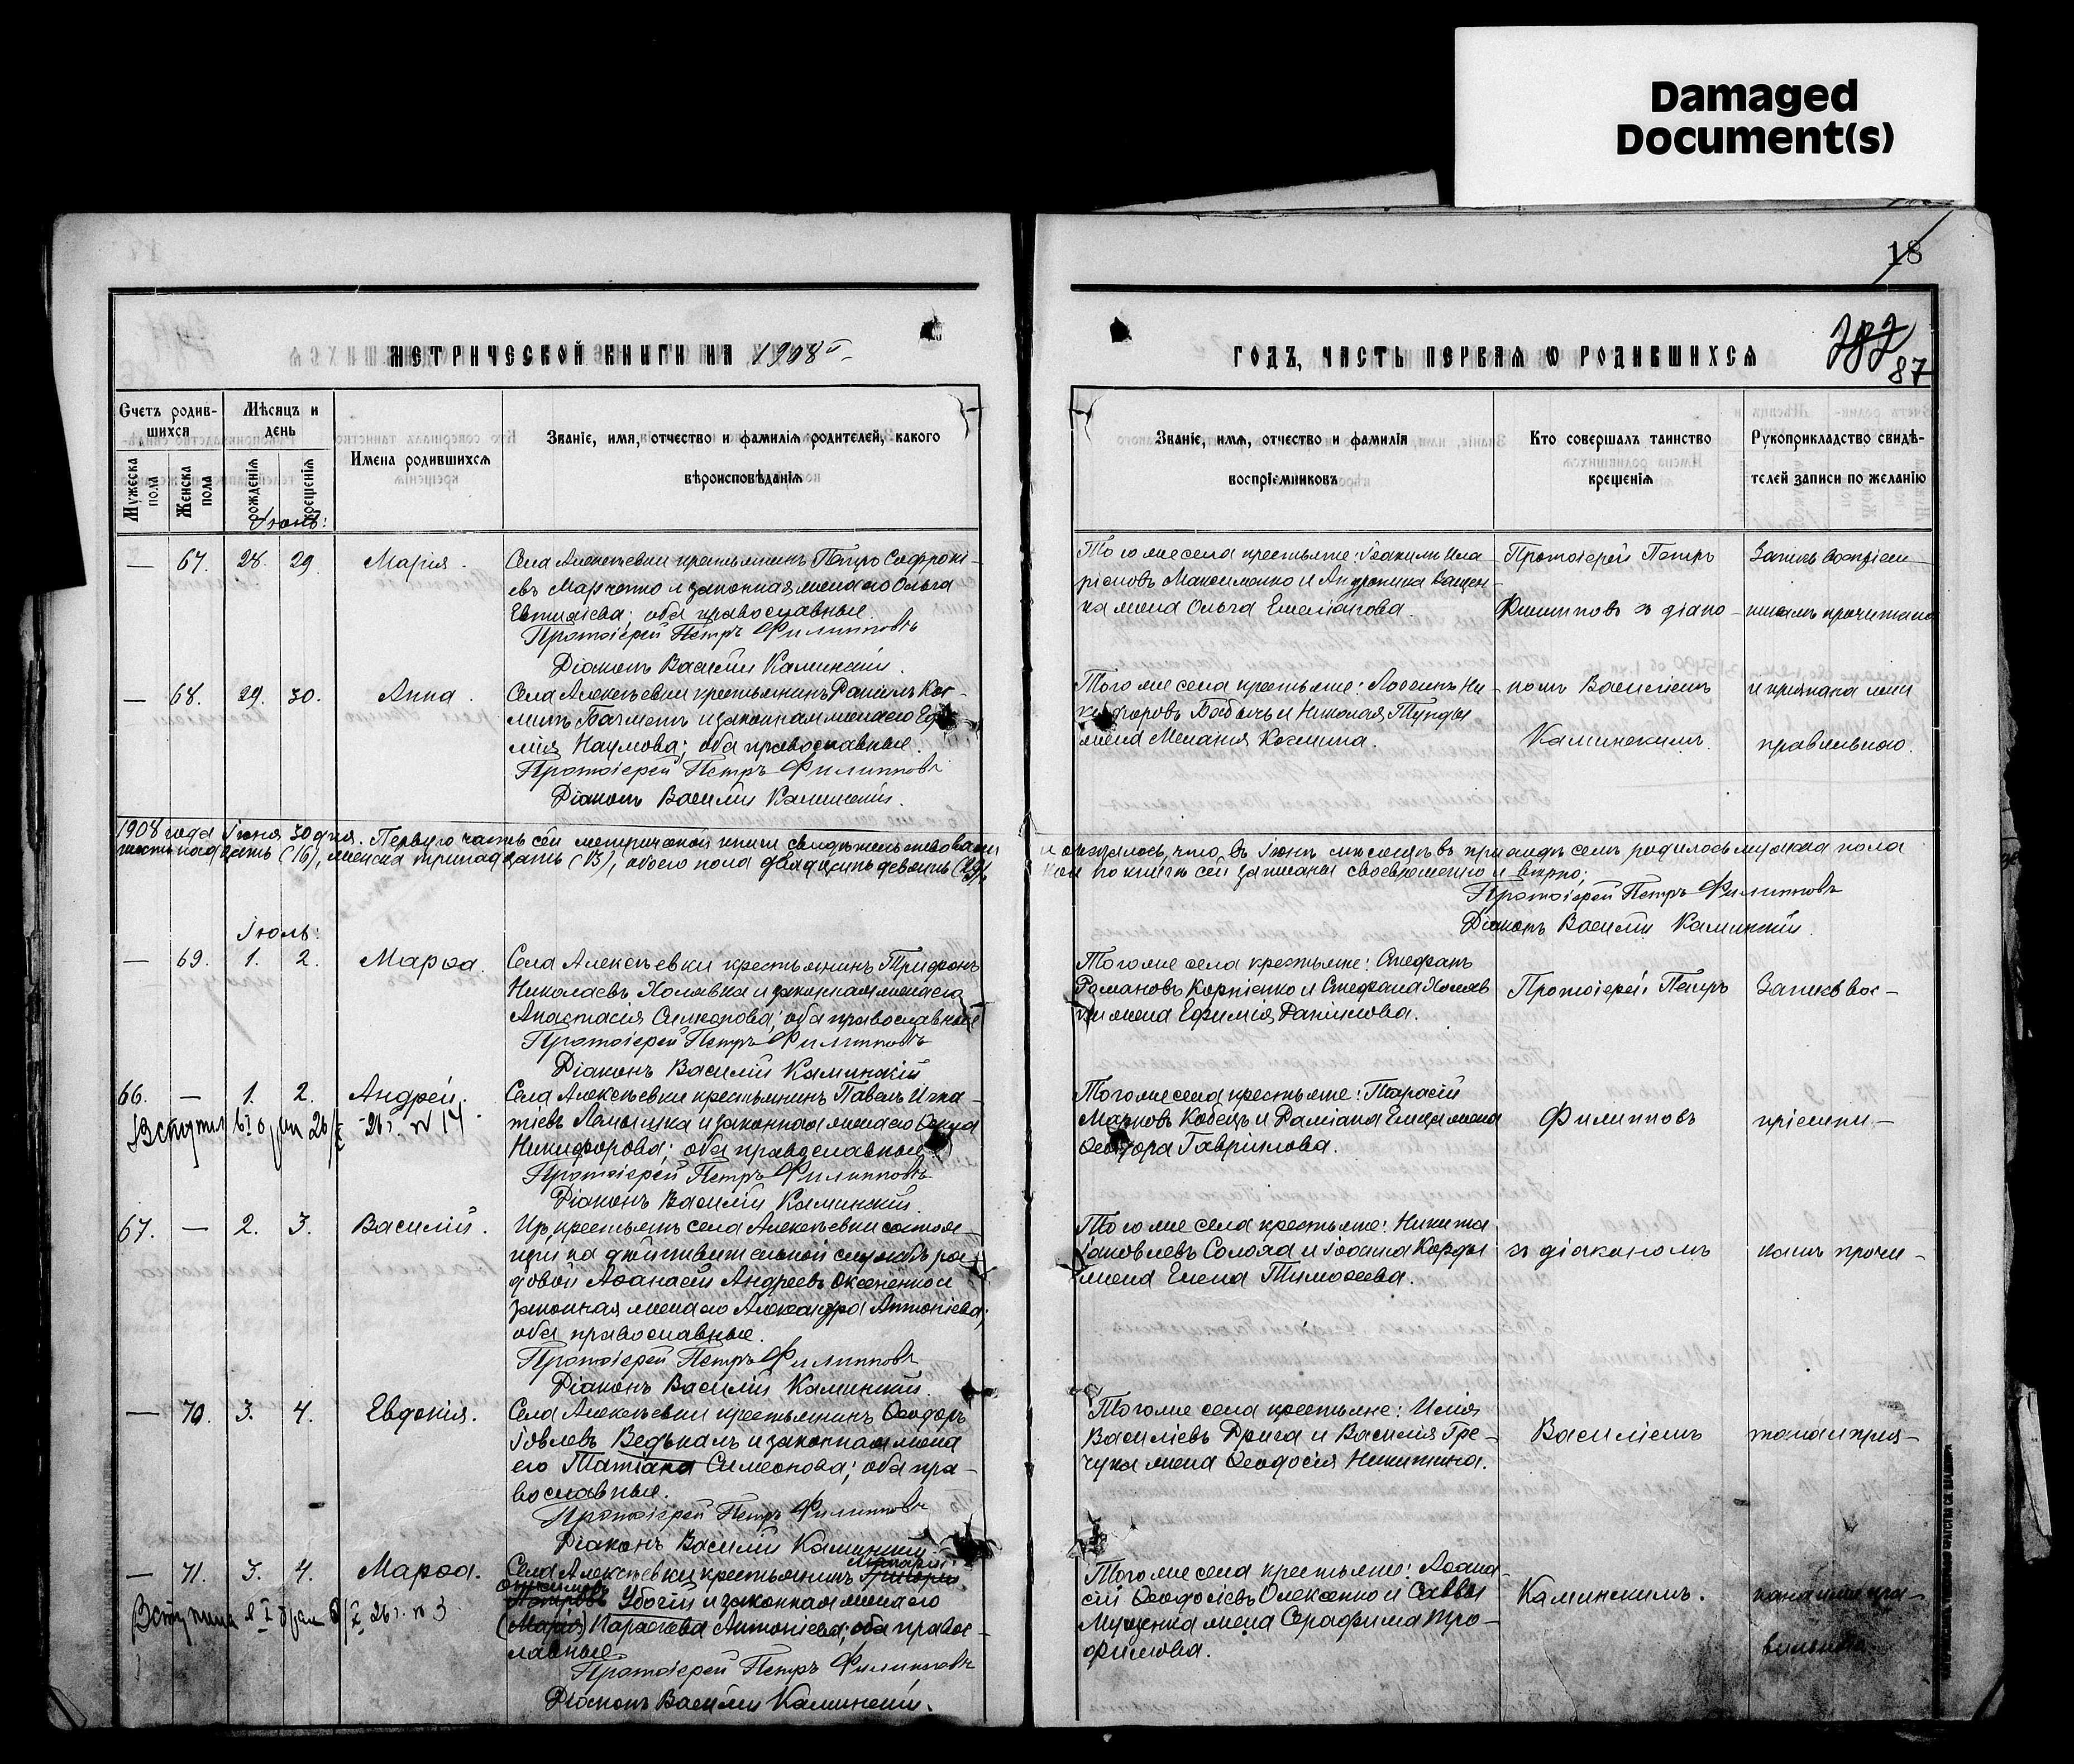 Damaged
Document(s)
18
МЕТРИЧЕСКОЙ КНИГИ НА 1908 г.
ГОДЪ, ЧАСТЬ ПЕРВАЯ О РОДИВШИХСЯ
87
Счетъ родив-
шихся
Мужеска
пола
Женска
пола
Мѣсяцъ и
день
рожденія
крещенія
Имена родившихся
Званіе, имя, отчество и фамилія родителей, какого
вѣроисповѣданія
Званіе, имя, отчество и фамилія
воспріемниковъ
Кто совершалъ таинство
крещенія
Рукоприкладство свидѣ-
телей записи по желанію
Іюнь:
— 67. 28. 29. Марія.
Села Алексѣевки крестьянинъ Петръ Софроні-
евъ Марченко и законная жена его Ольга
оба православные.
Протоіерей Петръ Филипповъ
Діаконъ Василій Каминскій.
Того же села крестьяне: Іоакимъ Ила
ріоновъ Максименко и Андроника Ващен-
ка жена Ольга Емеліанова.
Протоіерей Петръ
Филипповъ з діако-
Запись воспріем-
никамъ прочитана
— 68. 29. 30. Анна.
Села Алексѣевки крестьянинъ Даніилъ Кос-
минъ Бачметъ и законная жена его Ефи
мія Наумова; оба православные.
Протоіерей Петръ Филипповъ
Діаконъ Василій Каминскій.
Того же села крестьяне: Логгинъ Ни-
кифоровъ Бабычъ и Николая Тунды
жена Меланія Космина.
номъ Василіемъ
Каминскимъ.
и признана ими
правильною.
1908 года Іюня 30 дня. Первую часть сей метрической книги свидѣтельствовали и оказалось, что въ Іюнѣ мѣсяцѣ въ приходѣ семъ родилось мужеска пола
шестнадцать (16), женска тринадцать (13), обоего пола двадцать девять (29), кои по книгѣ сей записаны своевременно и вѣрно;
Протоіерей Петръ Филипповъ
Діаконъ Василій Каминскій.
Іюль:
— 69. 1. 2. Марѳа.
Села Алексѣевки крестьянинъ Трифонъ
Николаевъ Холявка и законная жена его
Анастасія Симеонова; оба православные
Протоіерей Петръ Филипповъ
Діаконъ Василій Каминскій
Того же села крестьяне: Стефанъ
Романовъ Корніенко и Стефана Холяв
ки жена Ефимія Даніилова.
Протоіерей Петръ
Запись вос-
66. — 1. 2. Андрей.
Села Алексѣевки крестьянинъ Павелъ Игна-
тіевъ и законная жена его
Никифорова; оба православные.
Протоіерей Петръ Филипповъ
Діаконъ Василій Каминскій.
Вступил в I о брак 26/X - 26 г. № 14
Того же села крестьяне: Тарасій
Марковъ Кобецъ и Даміана жена
Ѳеодора Гавріилова.
Филипповъ
пріемни-
67. — 2. 3. Василій.
Изъ крестьянъ села Алексѣевки состоя-
щій на дѣйствительной службѣ ря-
довой Аѳанасій Андреевъ Оксененко и
законная жена его Александра Антоніева;
оба православные.
Протоіерей Петръ Филипповъ
Діаконъ Василій Каминскій.
Того же села крестьяне: Никита
Іаковлевъ Солоха и Іоанна Корды
жена Елена Тимоѳеева.
з діакономъ
камъ прочи-
— 70. 3. 4. Евдокія.
Села Алексѣевки крестьянинъ Ѳеодоръ
Іовлевъ Ведькалъ и законная жена
его Татіана Симеонова; оба пра-
вославные.
Протоіерей Петръ Филипповъ
Діаконъ Василій Каминскій.
Того же села крестьяне: Илія
Василіевъ Дрига и Василія Гре-
чука жена Ѳеодосія Никитина.
Василіемъ
тана и приз-
— 71. 3. 4. Марѳа.
Села Алексѣевки крестьянинъ Григорій
Петровъ Убогій и законная жена его
(Марія) Параскева Антоніева; оба правос-
лавные.
Протоіерей Петръ Филипповъ
Діаконъ Василій Каминскій.
Вступила в I брак /X 26 г. № 3
Того же села крестьяне: Аѳана-
сій Ѳеодосіевъ Олексенко и Саввы
Мущенка жена Серафима Тро-
фимова.
Каминскимъ.
нана ими пра-
вильною.